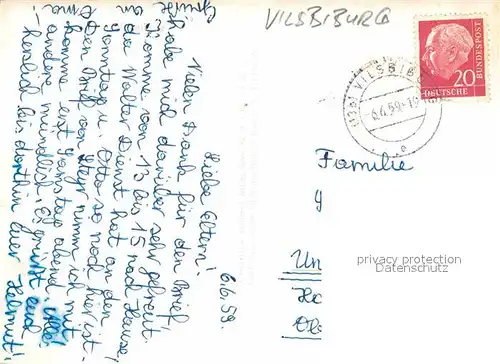 VILSBIBURG
20
DEUTSCHE
BUNDESPOST
VILSBIB
6.6.59
6.6.59.
Liebe Eltern!
Vielen Dank für den Brief,
habe mich darüber sehr gefreut.
Komme vom 13 bis 15 nach Hause,
da Walter Dienst hat an den
Sonntag u. Otto so noch hier ist.
Den Brief von nimm ich mit
komme erst Samstag abend. Alles
andere mündlich. Es grüßt euch
herzlich bis dorthin Euer Helmut!
Grüße an
Oma.
Familie
y
Un
privacy protection watermark